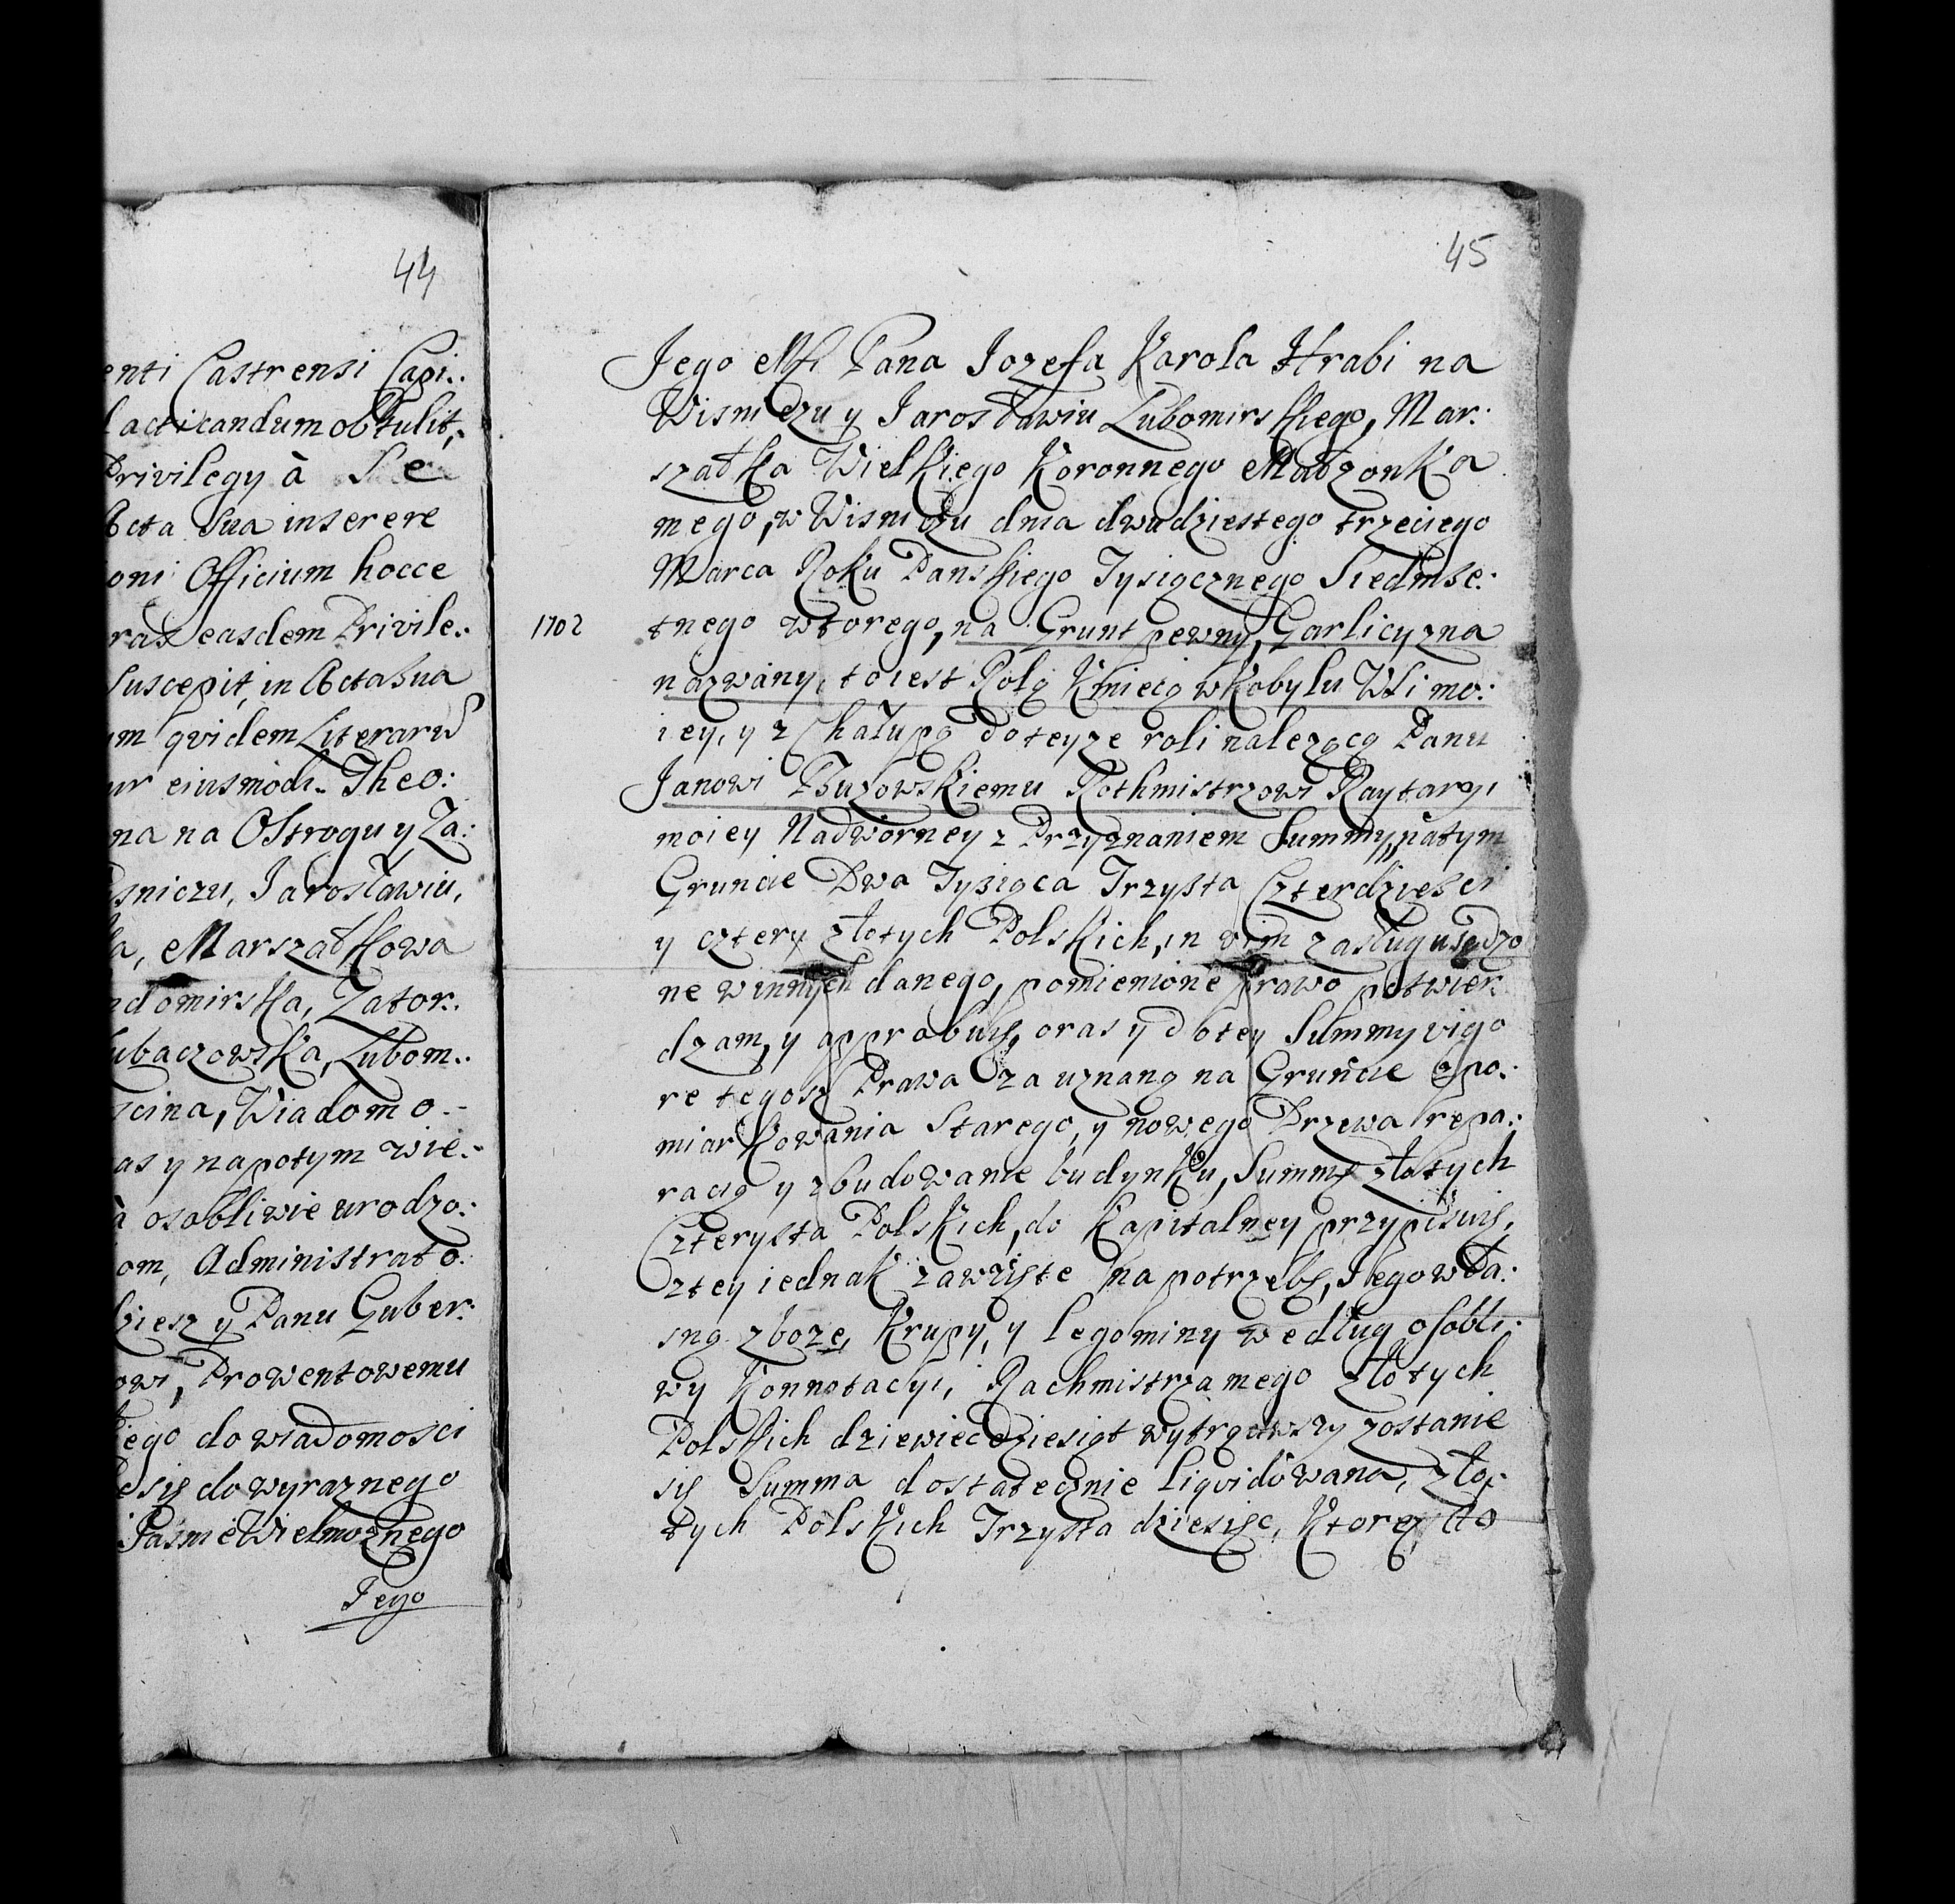 44
enti Castrensi Capi:
acticandum obtulit,
Privilegy à Se
Acta Sua inserere
oni Officium hocce
ras easdem Privile:
Suscepit, in Acta Sua
m qvidem Literarū
ur eiusmodi. Theo:
na na Ostrogu y Za:
sniczu, Jarosławiu,
a, Marszałkowa
ndomirska, Zator:
ubaczowska, Lubom:
scina, Wiadomo:
as y napotym wie:
à osobliwie urodzo:
om, Administrato:
biesz y Panu Guber:
owi, Prowentowemu
ego do wiadomosci
esię do wyraznego
Jasnie Wielmoznego
Jego
45
Jego Msci Pana Jozefa Karola Hrabi na
Wisniczu y Jarosławiu Lubomirskiego, Mar:
szałka Wielkiego Koronnego Małzonka
mego, w Wisniczu dnia dwudziestego trzeciego
Marca Roku Panskiego Tysiącznego Siedmse:
1702
tnego wtorego, na Grunt pewny, Garlicyzna
nazwany, to iest Rolą Kmiecą w Kobylu WSi mo:
iey, y z Chałupą do teyze roli nalezącą Panu
Janowi Buzowskiemu Rothmistrzowi Raytaryi
moiey Nadworney z Przyznaniem Summy, na tym
Gruncie Dwa Tysiąca Trzysta Czterdziesci
y cztery złotych Polskich, in vim zasług usądzo
ne winnych danego, pomienione prawo potwier:
dzam, y approbuię, oras y do tey Summy vigo
re tegosz Prawa za uznaną na Gruncie zpo:
miarkowania Starego, y nowego Drzewa repa:
racią y zbudowanie budynku, Summę złotych
Czterysta Polskich, do Kapitalney przypisuię,
z tey iednak zawziste na potrzebę, Jego wła:
sną zboze, Krupy, y legominy według osobli:
wy Konnotacyi, Rachmistrza mego złotych
Polskich dziewiecdziesiąt wytrąciwszy zostanie
się Summa dostatecznie liqvidowana, zło:
tych Polskich Trzysta dziesięc, Ktorą to